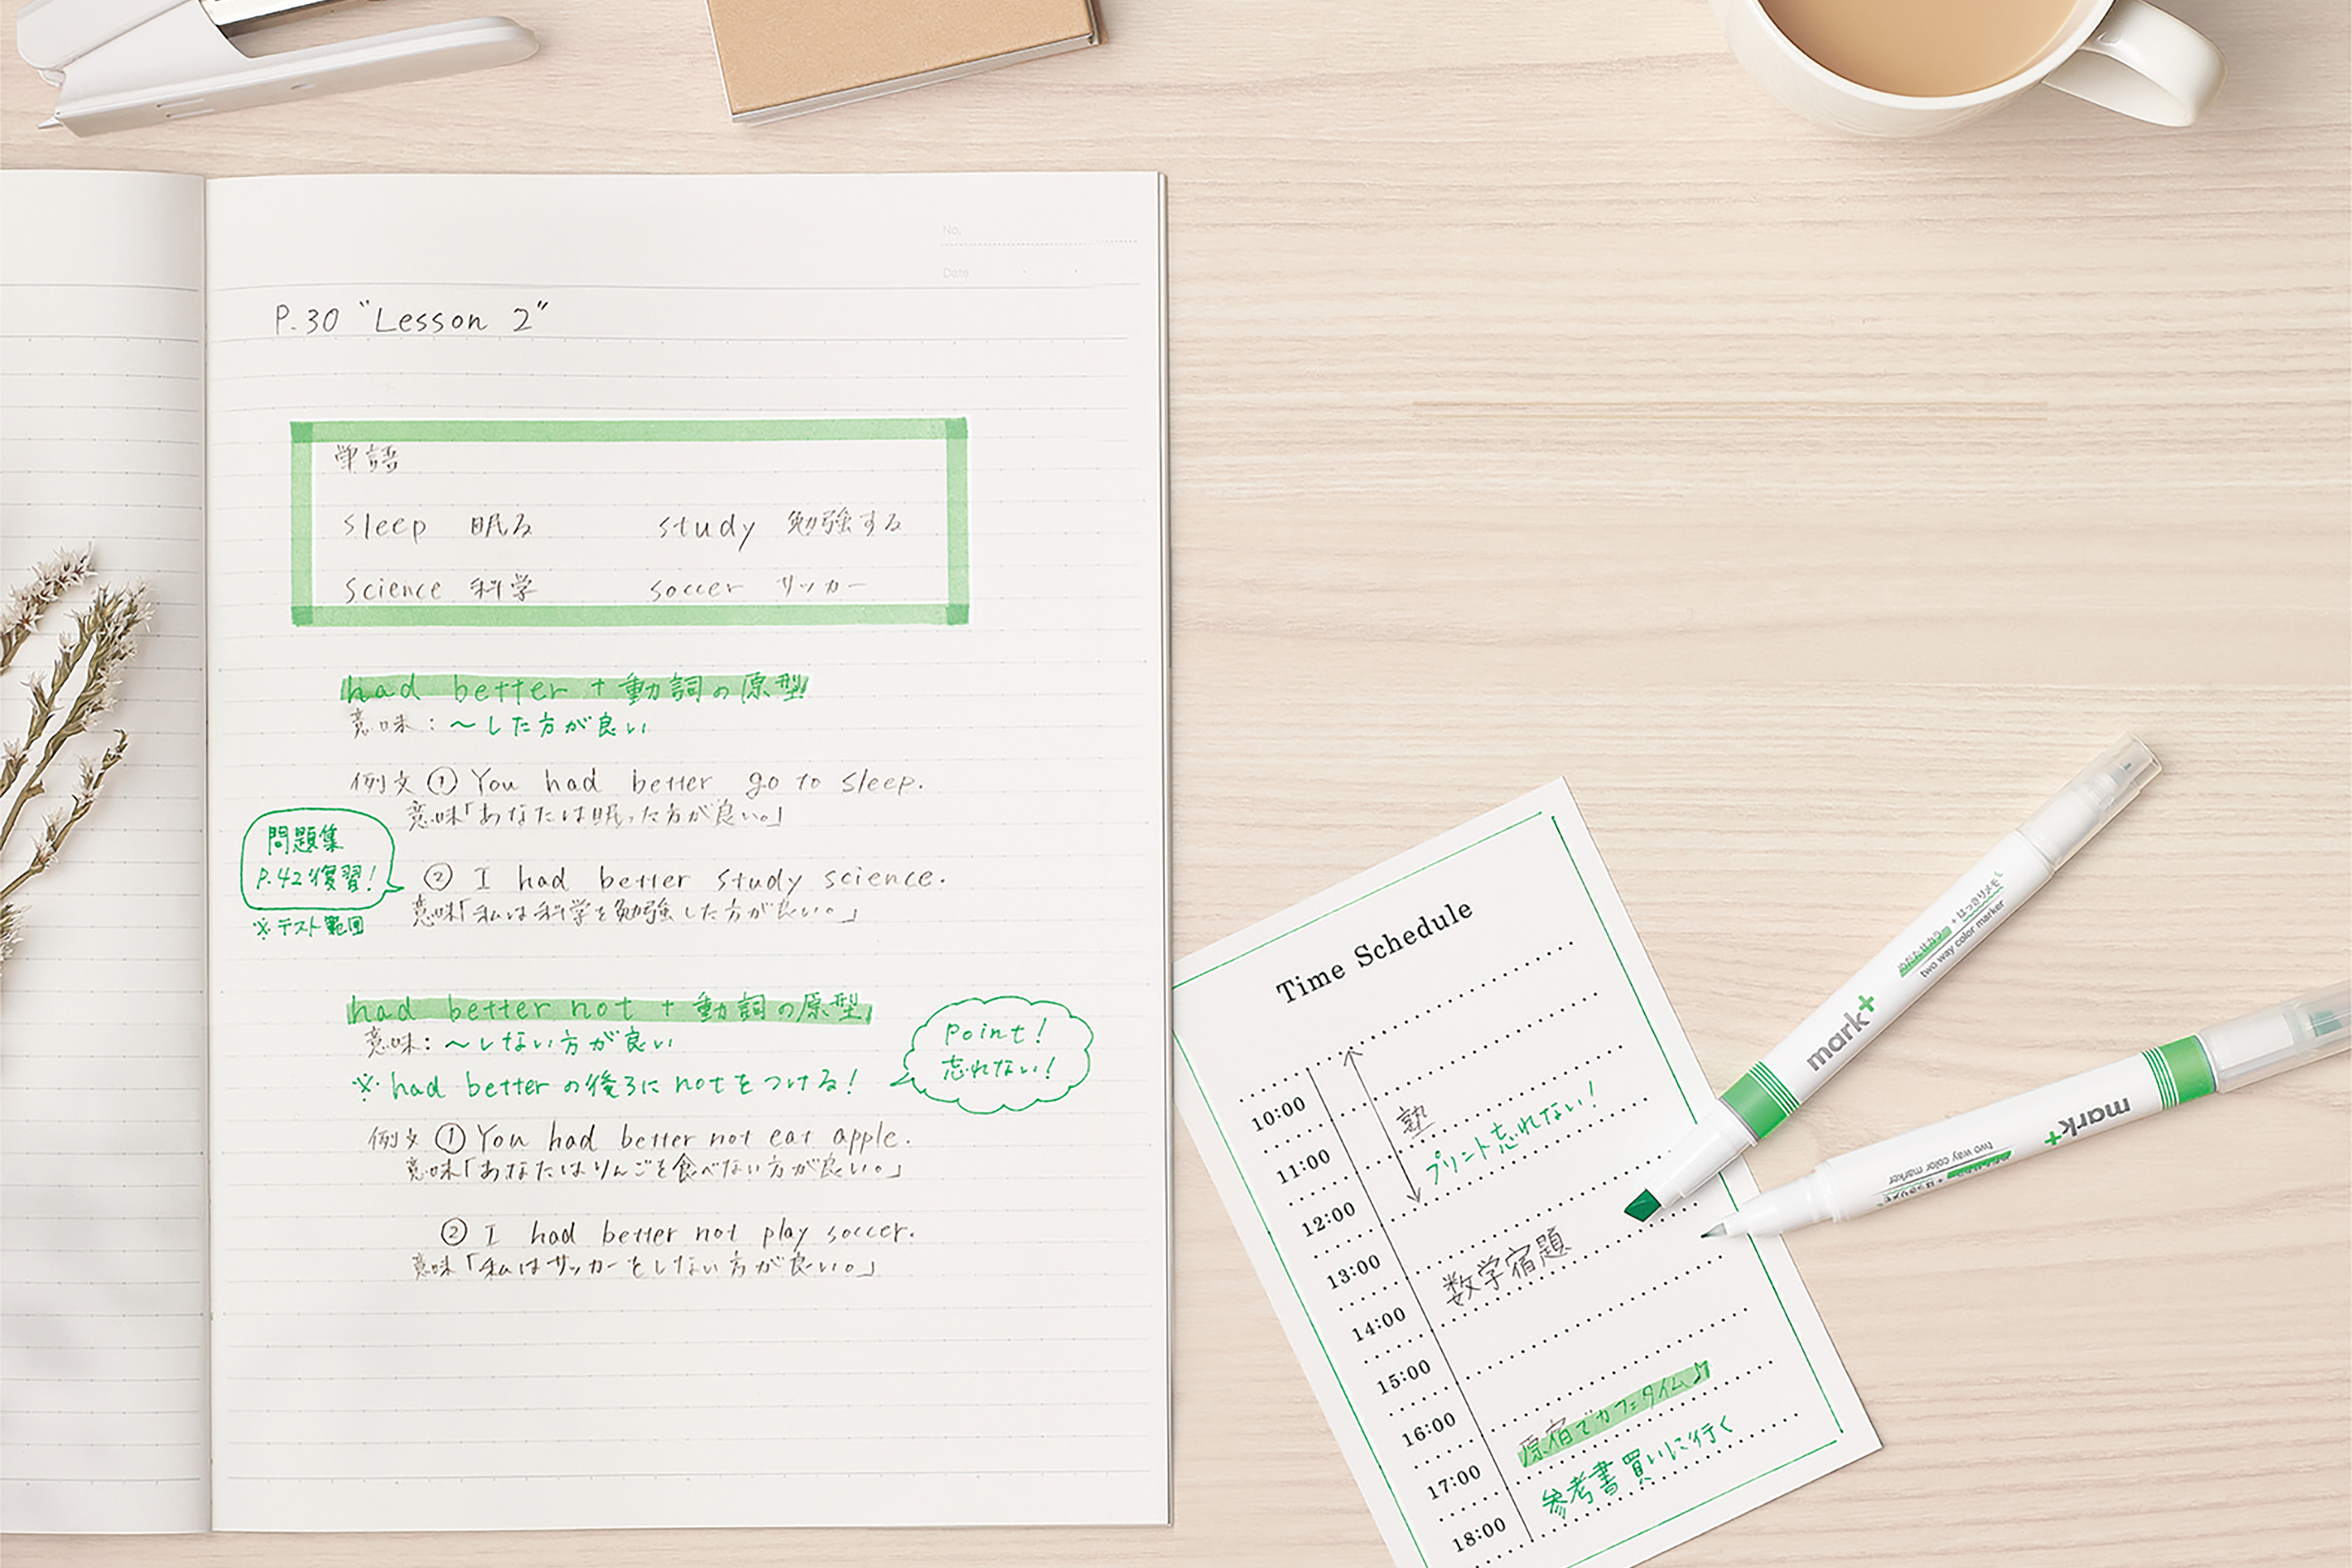 No.
Date
P.30 "Lesson 2"
単語
sleep 眠る study 勉強する
science 科学 soccer サッカー
had better + 動詞の原型
意味：〜した方が良い
例文 ① You had better go to sleep.
意味「あなたは眠った方が良い。」
問題集
P.42復習！
※テスト範囲
② I had better study science.
意味「私は科学を勉強した方が良い。」
had better not + 動詞の原型
意味：〜しない方が良い
※ had better の後ろに notをつける！
Point!
忘れない！
例文 ① You had better not eat apple.
意味「あなたはりんごを食べない方が良い。」
② I had better not play soccer.
意味「私はサッカーをしない方が良い。」
Time Schedule
10:00
塾
プリント忘れない！
11:00
12:00
13:00
数学宿題
14:00
15:00
16:00
原宿でカフェタイム♪
17:00
参考書買いに行く
18:00
mark+
めだたせカラー + はっきりメモ
two way color marker
mark+
two way color marker